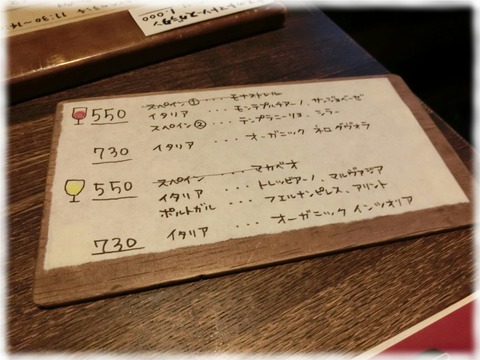 11:30〜14
1,000
550 スペイン① ・・・ モナストレル
イタリア ・・・ モンテプルチアーノ、サンジョベーゼ
スペイン② ・・・ テンプラニーリョ、シラー
730 イタリア ・・・ オーガニック ネロ ダヴォラ
550 スペイン ・・・ マカベオ
イタリア ・・・ トレッビアーノ、マルヴァジア
ポルトガル ・・・ フェルナンピレス、アリント
730 イタリア ・・・ オーガニック インツォリア